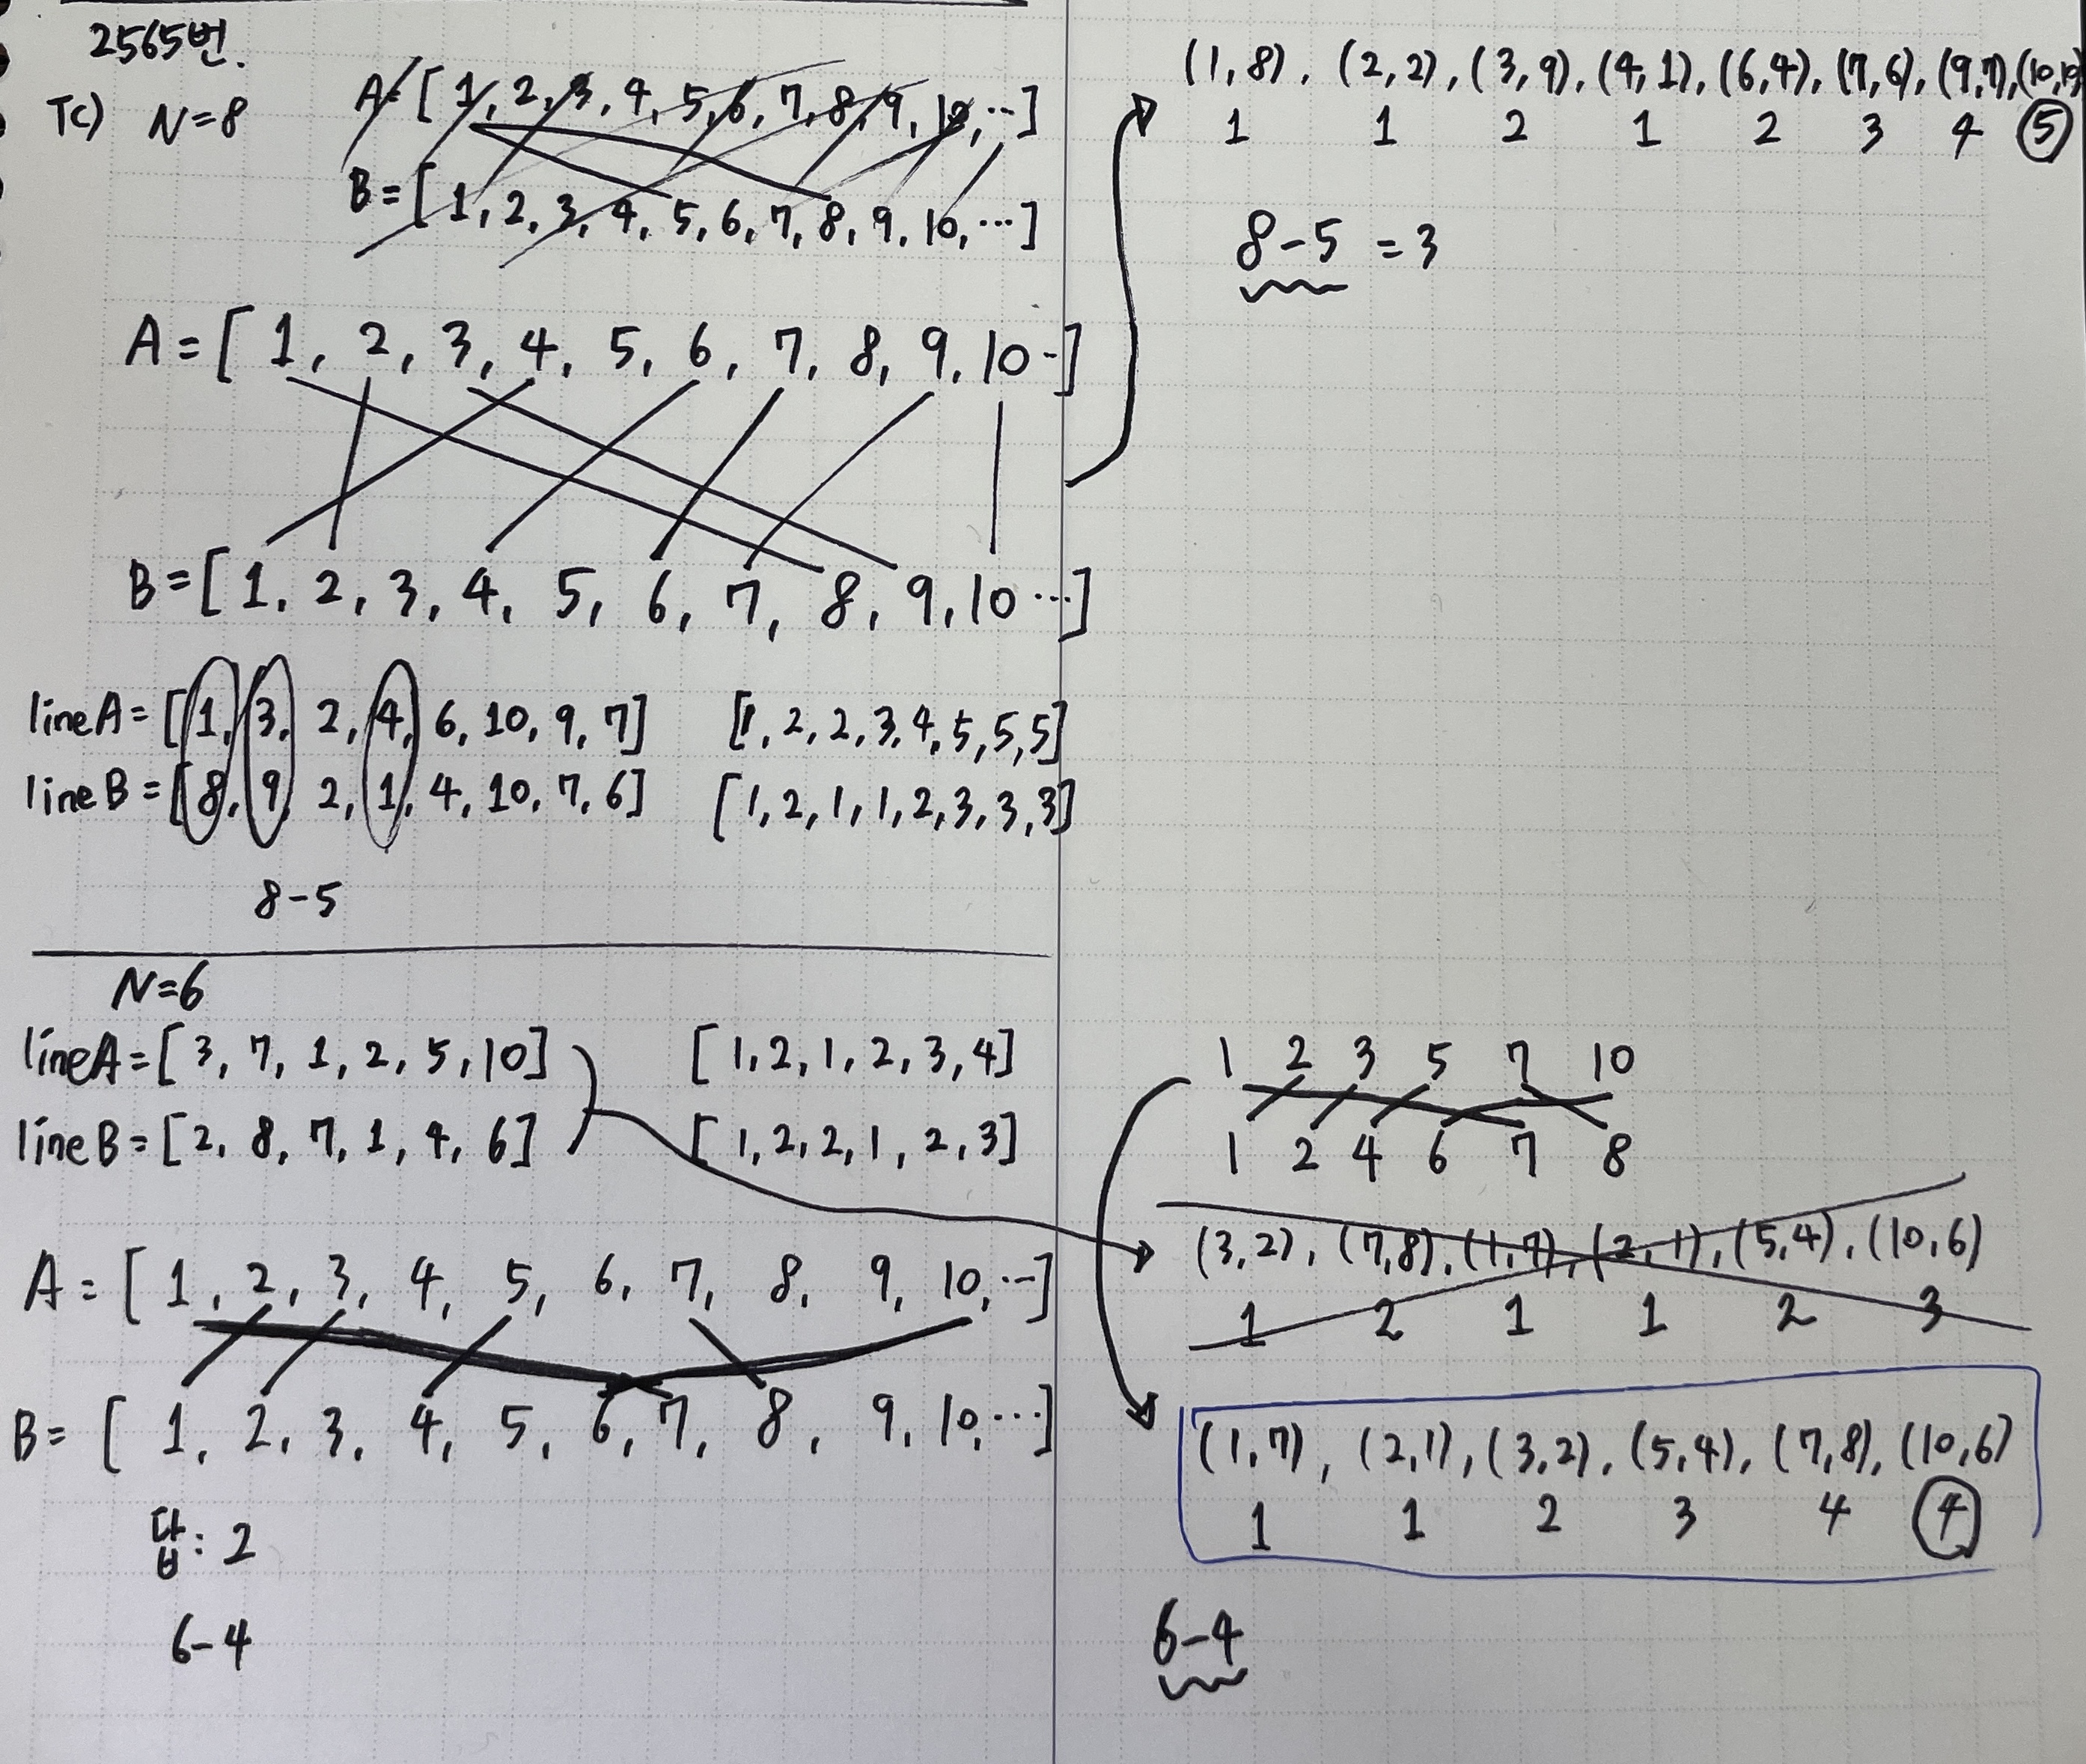 2565번.
TC) N=8
A=[1, 2, 3, 4, 5, 6, 7, 8, 9, 10, ...]
B=[1, 2, 3, 4, 5, 6, 7, 8, 9, 10, ...]
A=[1, 2, 3, 4, 5, 6, 7, 8, 9, 10 ..]
B=[1, 2, 3, 4, 5, 6, 7, 8, 9, 10 ...]
lineA=[1, 3, 2, 4, 6, 10, 9, 7] [1, 2, 2, 3, 4, 5, 5, 5]
lineB=[8, 9, 2, 1, 4, 10, 7, 6] [1, 2, 1, 1, 2, 3, 3, 3]
8-5
N=6
lineA=[3, 7, 1, 2, 5, 10] [1, 2, 1, 2, 3, 4]
lineB=[2, 8, 7, 1, 4, 6] [1, 2, 2, 1, 2, 3]
A=[1, 2, 3, 4, 5, 6, 7, 8, 9, 10, ...]
B=[1, 2, 3, 4, 5, 6, 7, 8, 9, 10, ...]
답: 2
6-4
(1,8), (2,2), (3,9), (4,1), (6,4), (7,6), (9,7), (10,10)
1 1 2 1 2 3 4 5
8-5 =3
1 2 3 5 7 10
1 2 4 6 7 8
(3,2), (7,8), (1,7), (2,1), (5,4), (10,6)
1 2 1 1 2 3
(1,7), (2,1), (3,2), (5,4), (7,8), (10,6)
1 1 2 3 4 4
6-4